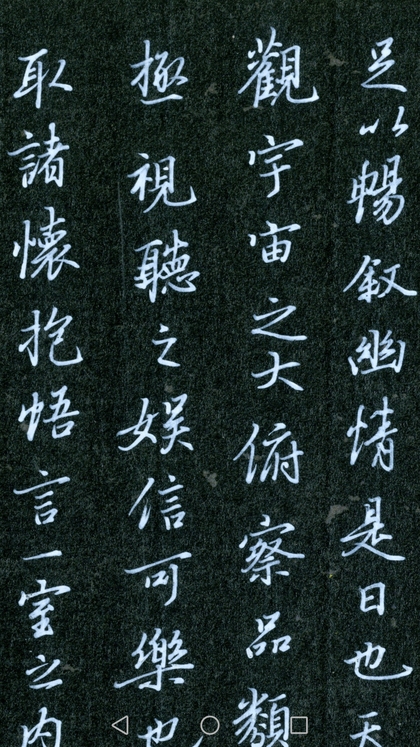 足以暢叙幽情是日也天
觀宇宙之大俯察品類
極視聽之娛信可樂也
取諸懷抱悟言一室之內